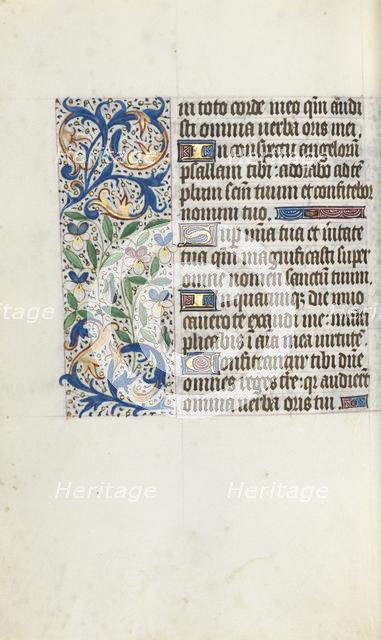 in toto corde meo qm audi
sti omnia uerba oris mei.
In conspectu angelorum
psallam tibi: adorabo ad te
plum scm tuum et confitebor
nomini tuo.
Sup mia tua et ueritate
tua qm magnificasti supr
omne nomen sanctum tuum.
In quacunque die inuo
cauero te exaudi me: multi
plicabis i aia mea uirtute.
Confiteantur tibi dne
omnes reges tre: qr audierūt
omnia uerba oris tui.
Heritage Heritage
Heritage Heritage